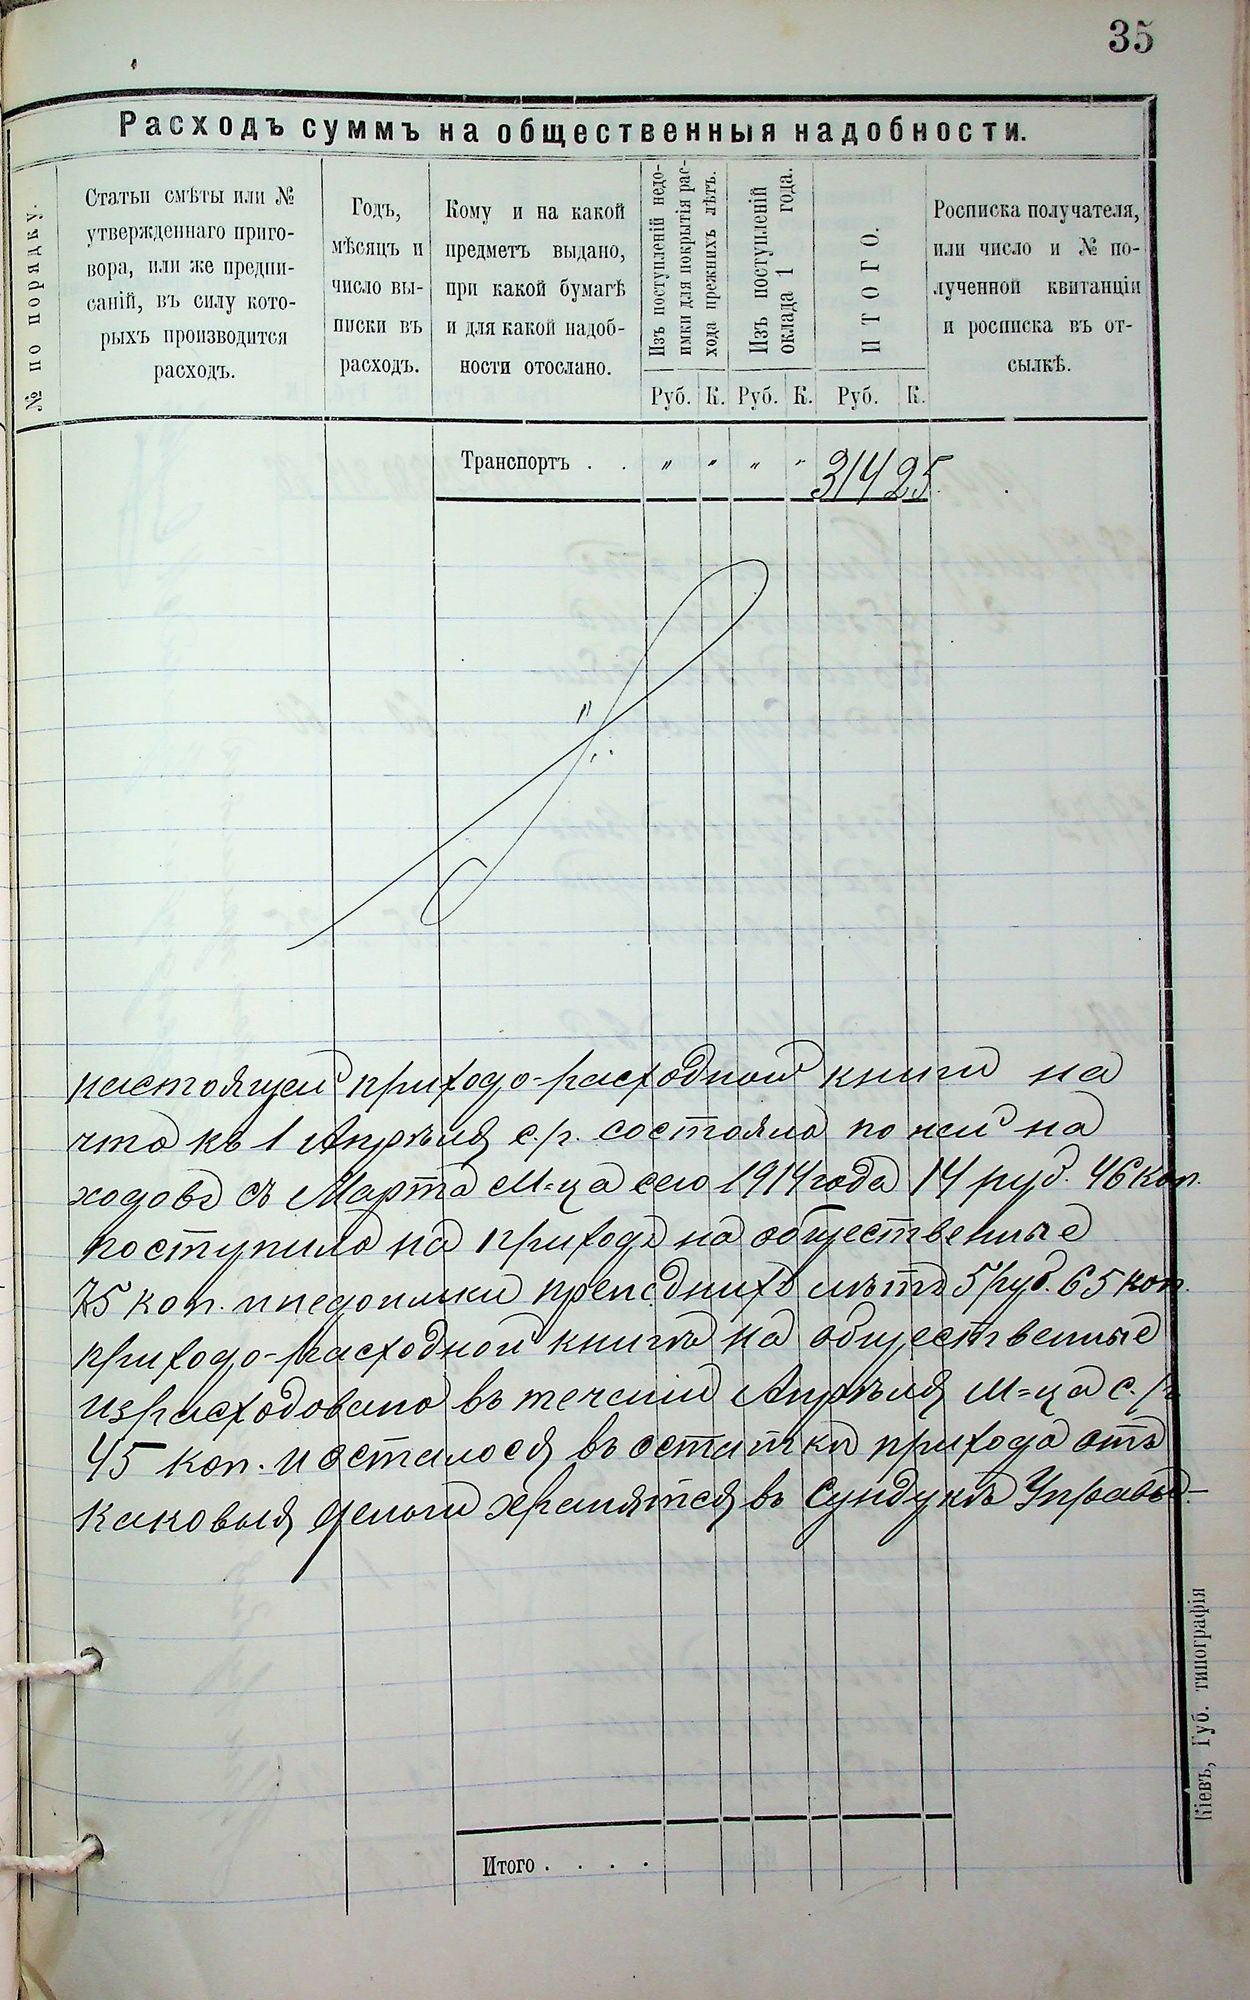 35
Расходъ суммъ на общественныя надобности.
№ по порядку.
Статьи смѣты или №
утвержденнаго приго-
вора, или же предпи-
саній, въ силу кото-
рыхъ производится
расходъ.
Годъ,
мѣсяцъ и
число вы-
писки въ
расходъ.
Кому и на какой
предметъ выдано,
при какой бумагѣ
и для какой надоб-
ности отослано.
Изъ поступленій недо-
имки для покрытія рас-
хода прежнихъ лѣтъ.
Изъ поступленій
оклада 1 года.
ИТОГО.
Росписка получателя,
или число и № по-
лученной квитанціи
и росписка въ от-
сылкѣ.
Руб. К. Руб. К. Руб. К.
Транспортъ . . " " " " 314 25.
настоящей приходо-расходной книги на
что къ 1 Апрѣля с.г. состояло по ней на
ходовъ съ Марта М=ца сего 1914 года 14 руб. 46 коп.
поступило на приходъ на общественные
75 коп. и недоимки преедних лѣтъ 5 руб. 65 коп.
приходо-расходной книгѣ на общественные
израсходовано въ теченіи Апрѣля М=ца с.г.
45 коп. и осталося въ остатки прихода отъ
каковыя деньги хранятся въ Сундукѣ Управы.-
Итого . . . .
Кіевъ, Губ. типографія